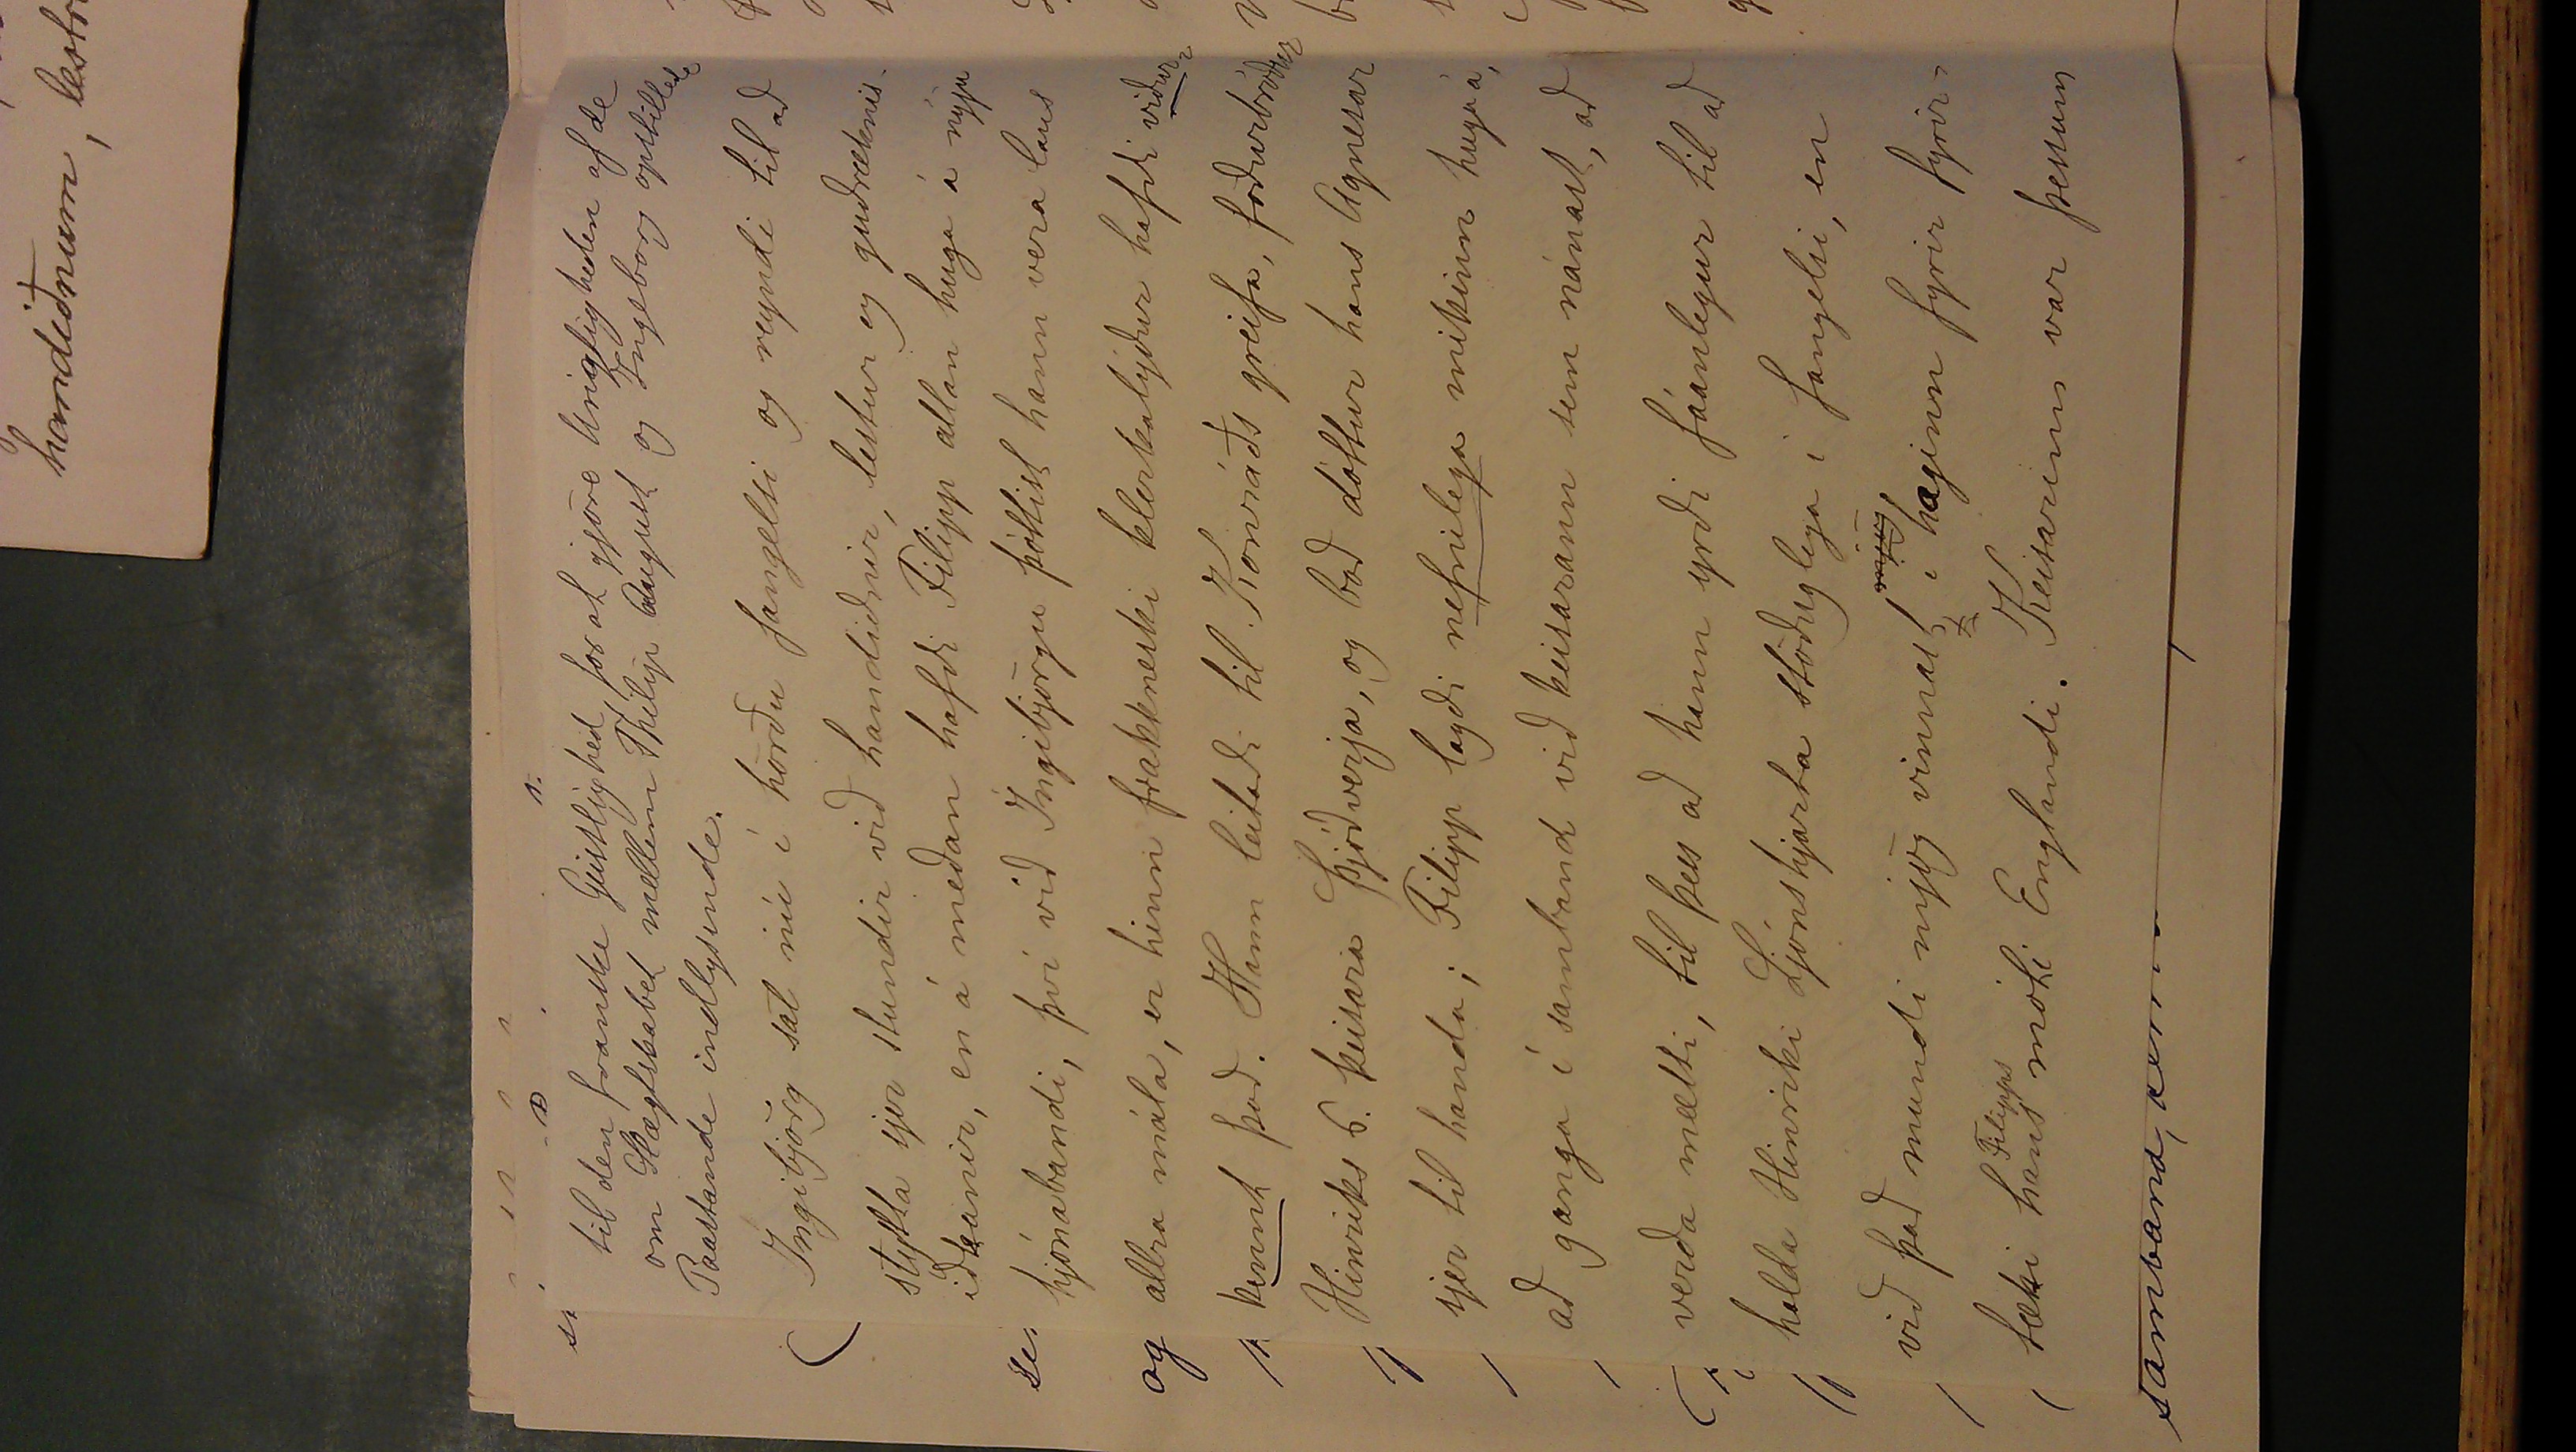 handiðnum, lestri
til den franske Geistlighed, for at gjøre Urigtigheden af de
om Slægtskabet mellem Philip August og Ingeborg opstillede
Paastande indlysende.
Ingibjörg sat nú í hörðu fangelsi og reyndi til að
stytta sjer stundir við handiðnir, lestur og guðræknis-
iðkanir, en á meðan hafði Filipp allan huga á nýju
hjónabandi, því við Ingibjörgu þóttist hann vera laus
allra mála, er hinn frakkneski klerkalýður hafði viður-
kennt það. Hann leitaði til Konráðs greifa, föðurbróður
Hinriks 6. keisara Þjóðverja, og bað dóttur hans Agnesar
sjer til handa; Filipp lagði nefnilega mikinn hug á,
að ganga í samband við keisarann sem nánast, að
verða mætti, til þess að hann yrði fáanlegur til að
halda Hinriki Ljónshjarta stöðuglega í fangelsi, en
við það mundi mjög vinnast í haginn fyrir fyrir-
Filipps
tæki hans móti Englandi. Keisarinn var þessum
og
samband, sem